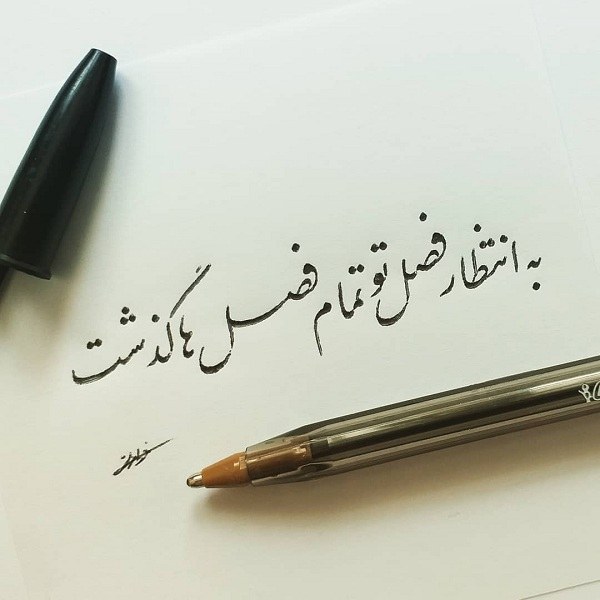 به انتظار فصل تو تمام فصل ها گذشت